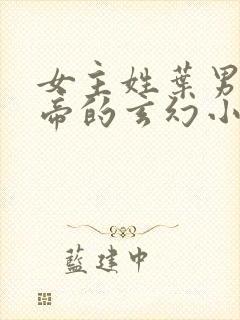 女主姓葉男
帝的玄幻小
藍建中